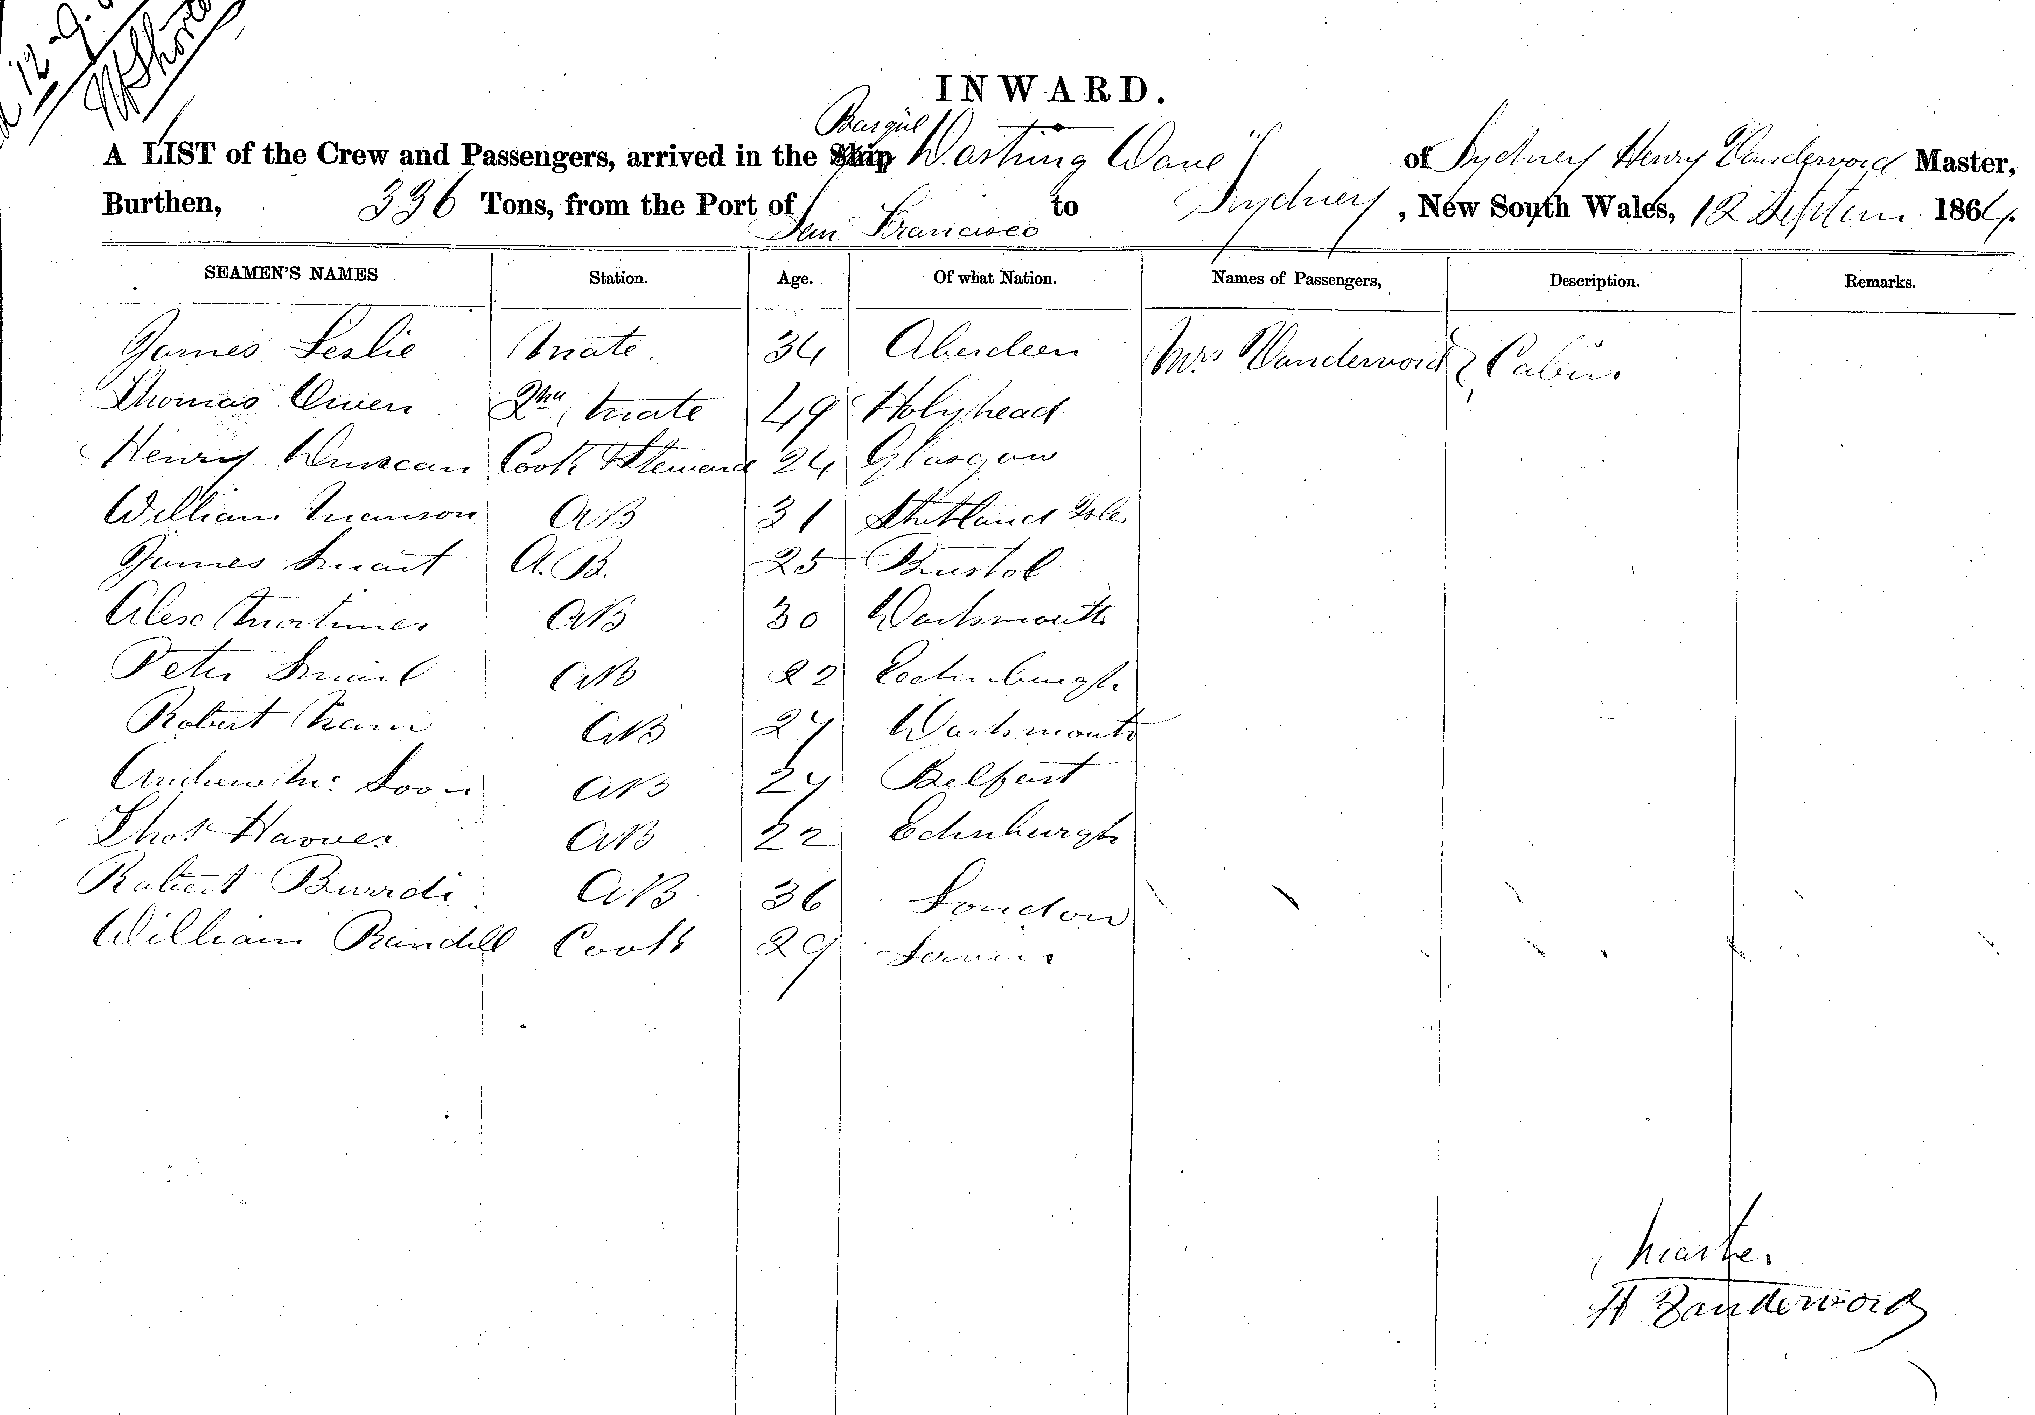 12-9-
INWARD.
A LIST of the Crew and Passengers, arrived in the Ship Barque "Dashing Wave" of Sydney Henry Vanderword Master,
Burthen, 336 Tons, from the Port of San Francisco to Sydney, New South Wales, 12 Septem 1864.
SEAMEN'S NAMES Station. Age. Of what Nation. Names of Passengers, Description. Remarks.
James Leslie Mate 34 Aberdeen Mrs Vanderword Cabin
Thomas Owen 2nd Mate 49 Holyhead
Henry Duncan Cook & Steward 24 Glasgow
William Manson AB 31 Shetland Isles
James Smart A.B. 25 Bristol
Alex Mortimer AB 30 Dartmouth
Peter Smail AB 22 Edinburgh
Robert AB 27 Dartmouth
Andrew Mc Loon AB 24 Belfast
Thos Harves AB 22 Edinburgh
Robert AB 36 London
William Randell Cook 29
Master
H Vanderword